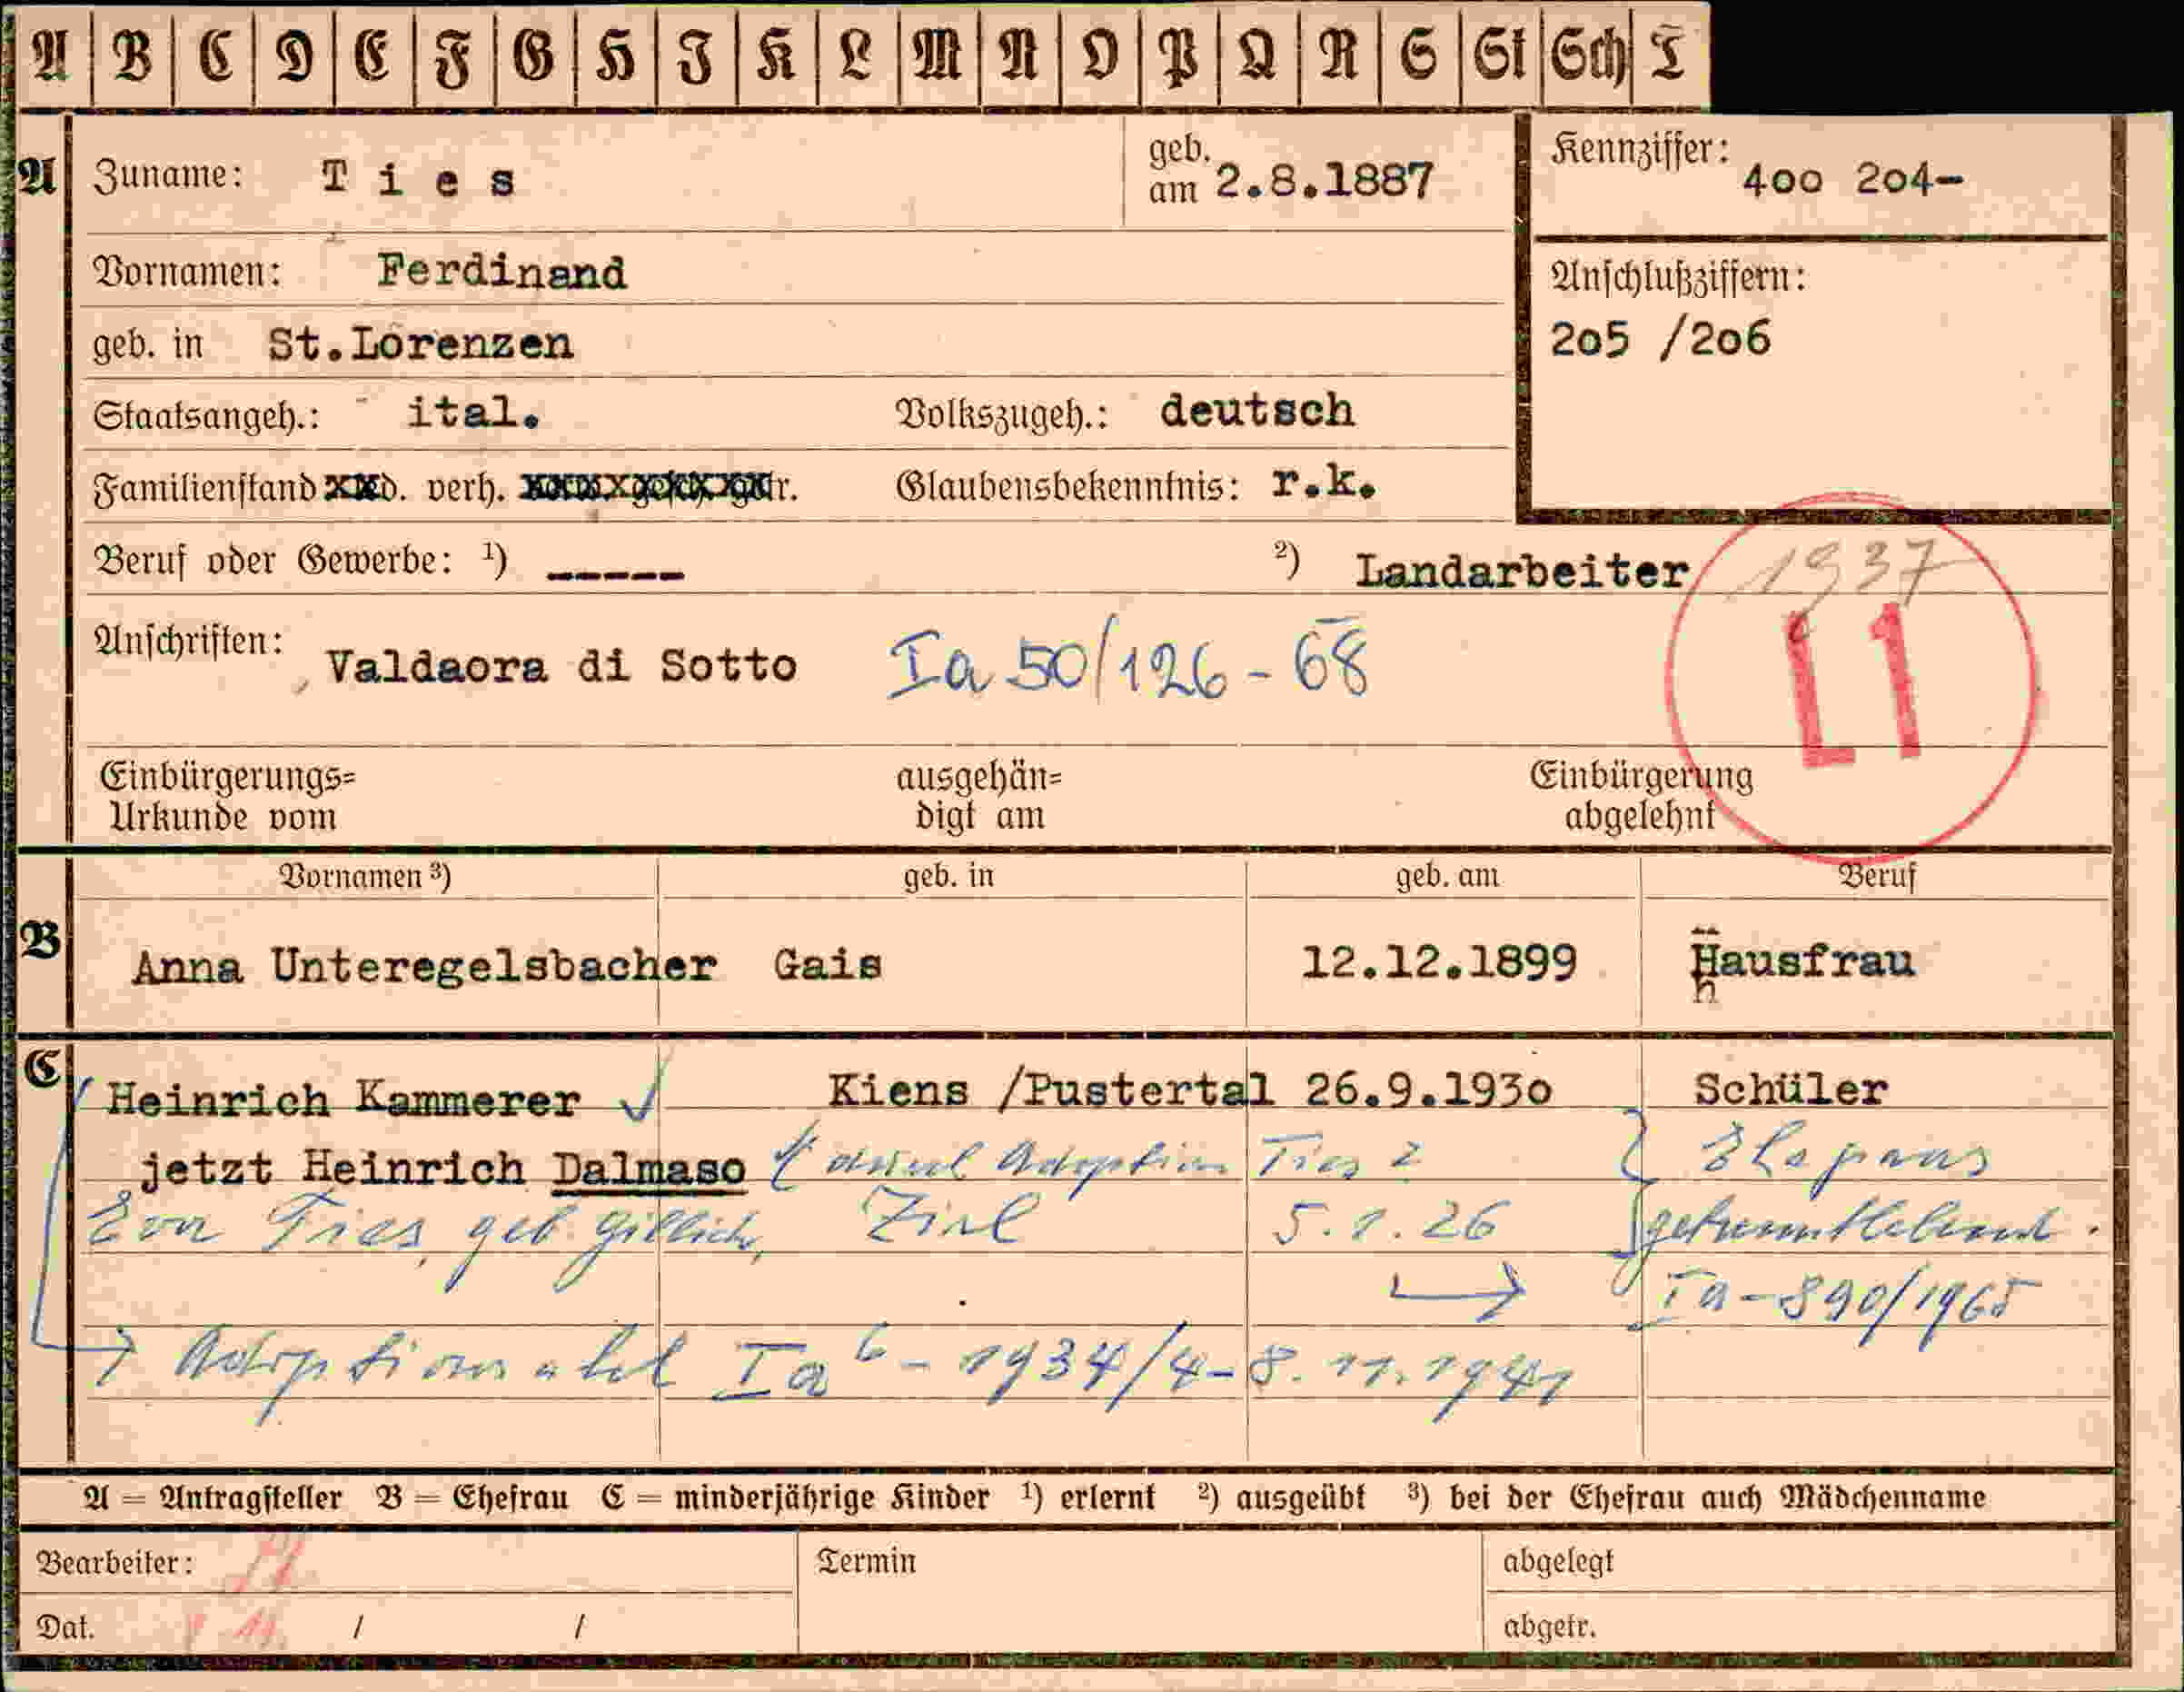 A B C D E F G H J K L M N O P Q R S St Sch T
A Zuname: Ties geb. am 2.8.1887 Kennziffer: 400 204-
Vornamen: Ferdinand Anschlußziffern:
geb. in St.Lorenzen 205 /206
Staatsangeh.: ital. Volkszugeh.: deutsch
Familienstand d. verh. r. Glaubensbekenntnis: r.k.
Beruf oder Gewerbe: ¹) ----- ²) Landarbeiter 1937
Anschriften: Valdaora di Sotto Ia 50/126-68 L1
Einbürgerungs= ausgehän= Einbürgerung
Urkunde vom digt am abgelehnt
Vornamen ³) geb. in geb. am Beruf
B Anna Unteregelsbacher Gais 12.12.1899 Hausfrau
C Heinrich Kammerer Kiens /Pustertal 26.9.1930 Schüler
jetzt Heinrich Dalmaso Adoption Ties
Ties, geb. Zirl 5.1.26 getrenntlebend.
Ia-890/1965
Adoption Ia 6 - 1934/4-8.11.1941
A = Antragsteller B = Ehefrau C = minderjährige Kinder ¹) erlernt ²) ausgeübt ³) bei der Ehefrau auch Mädchenname
Bearbeiter: Termin abgelegt
Dat. / / abgetr.